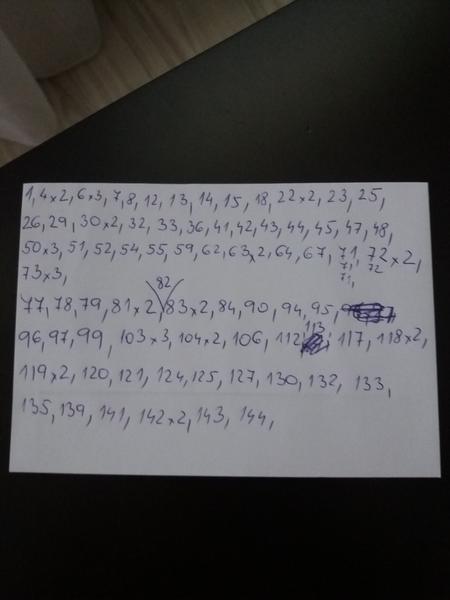 1, 4×2, 6×3, 7, 8, 12, 13, 14, 15, 18, 22×2, 23, 25,
26, 29, 30×2, 32, 33, 36, 41, 42, 43, 44, 45, 47, 48,
50×3, 51, 52, 54, 55, 59, 62, 63×2, 64, 67, 71, 72×2,
71, 72
73×3, 71,
82
77, 78, 79, 81×2, 83×2, 84, 90, 94, 95,
113
96, 97, 99, 103×3, 104×2, 106, 112, 117, 118×2,
119×2, 120, 121, 124, 125, 127, 130, 132, 133,
135, 139, 141, 142×2, 143, 144,